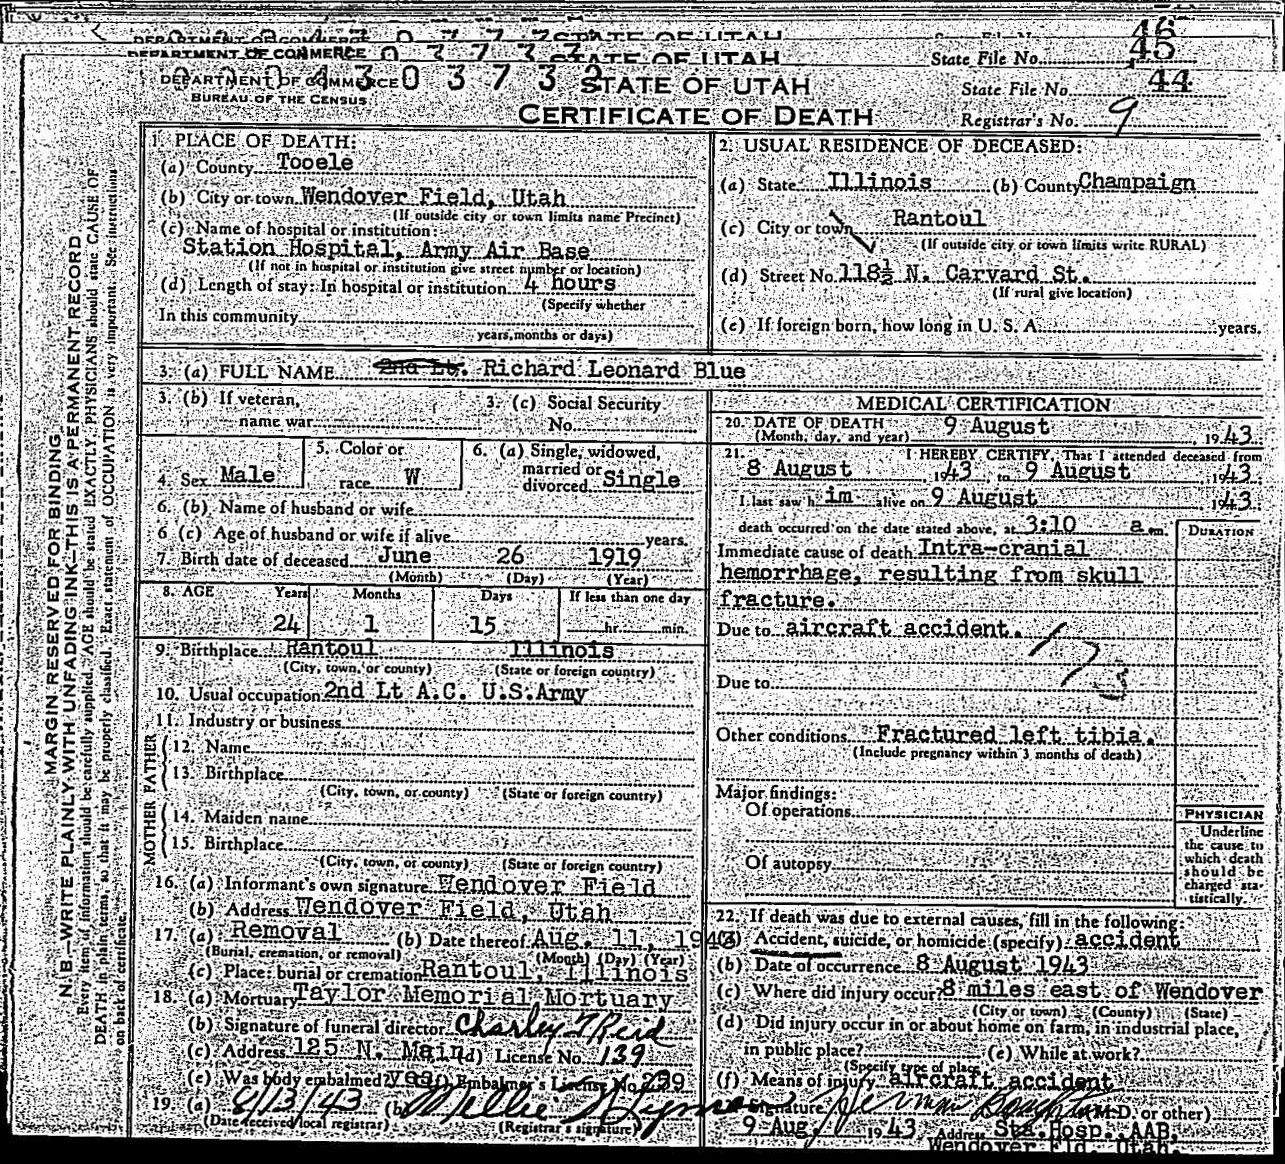 46
DEPARTMENT OF COMMERCE STATE OF UTAH
45
DEPARTMENT OF COMMERCE STATE OF UTAH State File No.
DEPARTMENT OF COMMERCE STATE OF UTAH State File No. 44
BUREAU OF THE CENSUS
CERTIFICATE OF DEATH Registrar's No. 9
MARGIN RESERVED FOR BINDING
N. B.—WRITE PLAINLY, WITH UNFADING INK—THIS IS A PERMANENT RECORD
Every item of information should be carefully supplied. AGE should be stated EXACTLY. PHYSICIANS should state CAUSE OF
DEATH in plain terms, so that it may be properly classified. Exact statement of OCCUPATION is very important. See instructions
on back of certificate.
1. PLACE OF DEATH:
(a) County Tooele
(b) City or town Wendover Field, Utah
(If outside city or town limits name Precinct)
(c) Name of hospital or institution:
Station Hospital, Army Air Base
(If not in hospital or institution give street number or location)
(d) Length of stay: In hospital or institution 4 hours
(Specify whether
In this community
years, months or days)
2. USUAL RESIDENCE OF DECEASED:
(a) State Illinois (b) County Champaign
(c) City or town Rantoul
(If outside city or town limits write RURAL)
(d) Street No. 118½ N. Carvard St.
(If rural give location)
(e) If foreign born, how long in U. S. A. years.
3. (a) FULL NAME 2nd Lt. Richard Leonard Blue
3. (b) If veteran, name war
3. (c) Social Security No.
4. Sex Male
5. Color or race W
6. (a) Single, widowed, married or divorced Single
6. (b) Name of husband or wife
6 (c) Age of husband or wife if alive years.
7. Birth date of deceased June 26 1919
(Month) (Day) (Year)
8. AGE Years Months Days If less than one day
24 1 15 hr. min.
9. Birthplace Rantoul Illinois
(City, town, or county) (State or foreign country)
10. Usual occupation 2nd Lt A.C. U.S.Army
11. Industry or business
FATHER
12. Name
13. Birthplace
(City, town, or county) (State or foreign country)
MOTHER
14. Maiden name
15. Birthplace
(City, town, or county) (State or foreign country)
16. (a) Informant's own signature Wendover Field
(b) Address Wendover Field, Utah
17 (a) Removal (b) Date thereof Aug. 11, 1943
(Burial, cremation, or removal) (Month) (Day) (Year)
(c) Place: burial or cremation Rantoul, Illinois
18. (a) Mortuary Taylor Memorial Mortuary
(b) Signature of funeral director Charley T Reid
(c) Address 125 N. Main (d) License No. 139
(e) Was body embalmed? yes (f) Embalmer's License No. 239
19. (a) 8/13/43 (b) Mellie Lyman
(Date received local registrar) (Registrar's signature)
MEDICAL CERTIFICATION
20. DATE OF DEATH 9 August 1943
(Month, day, and year)
21. I HEREBY CERTIFY, That I attended deceased from
8 August 1943 to 9 August 1943
I last saw h im alive on 9 August 1943
death occurred on the date stated above, at 3:10 a.m.
DURATION
Immediate cause of death Intra-cranial
hemorrhage, resulting from skull
fracture.
Due to aircraft accident.
Due to
Other conditions Fractured left tibia.
(Include pregnancy within 3 months of death)
Major findings:
Of operations
Of autopsy
PHYSICIAN
Underline
the cause to
which death
should be
charged sta-
tistically.
22. If death was due to external causes, fill in the following:
(a) Accident, suicide, or homicide (specify) accident
(b) Date of occurrence 8 August 1943
(c) Where did injury occur? 8 miles east of Wendover
(City or town) (County) (State)
(d) Did injury occur in or about home on farm, in industrial place,
in public place? (e) While at work?
(Specify type of place)
(f) Means of injury aircraft accident
Signature (M.D. or other)
9 Aug. 1943 Address Sta.Hosp., AAB,
Wendover Fld. Utah.